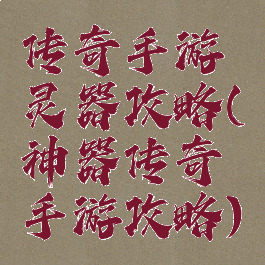 传奇手游
灵器攻略(
神器传奇
手游攻略)